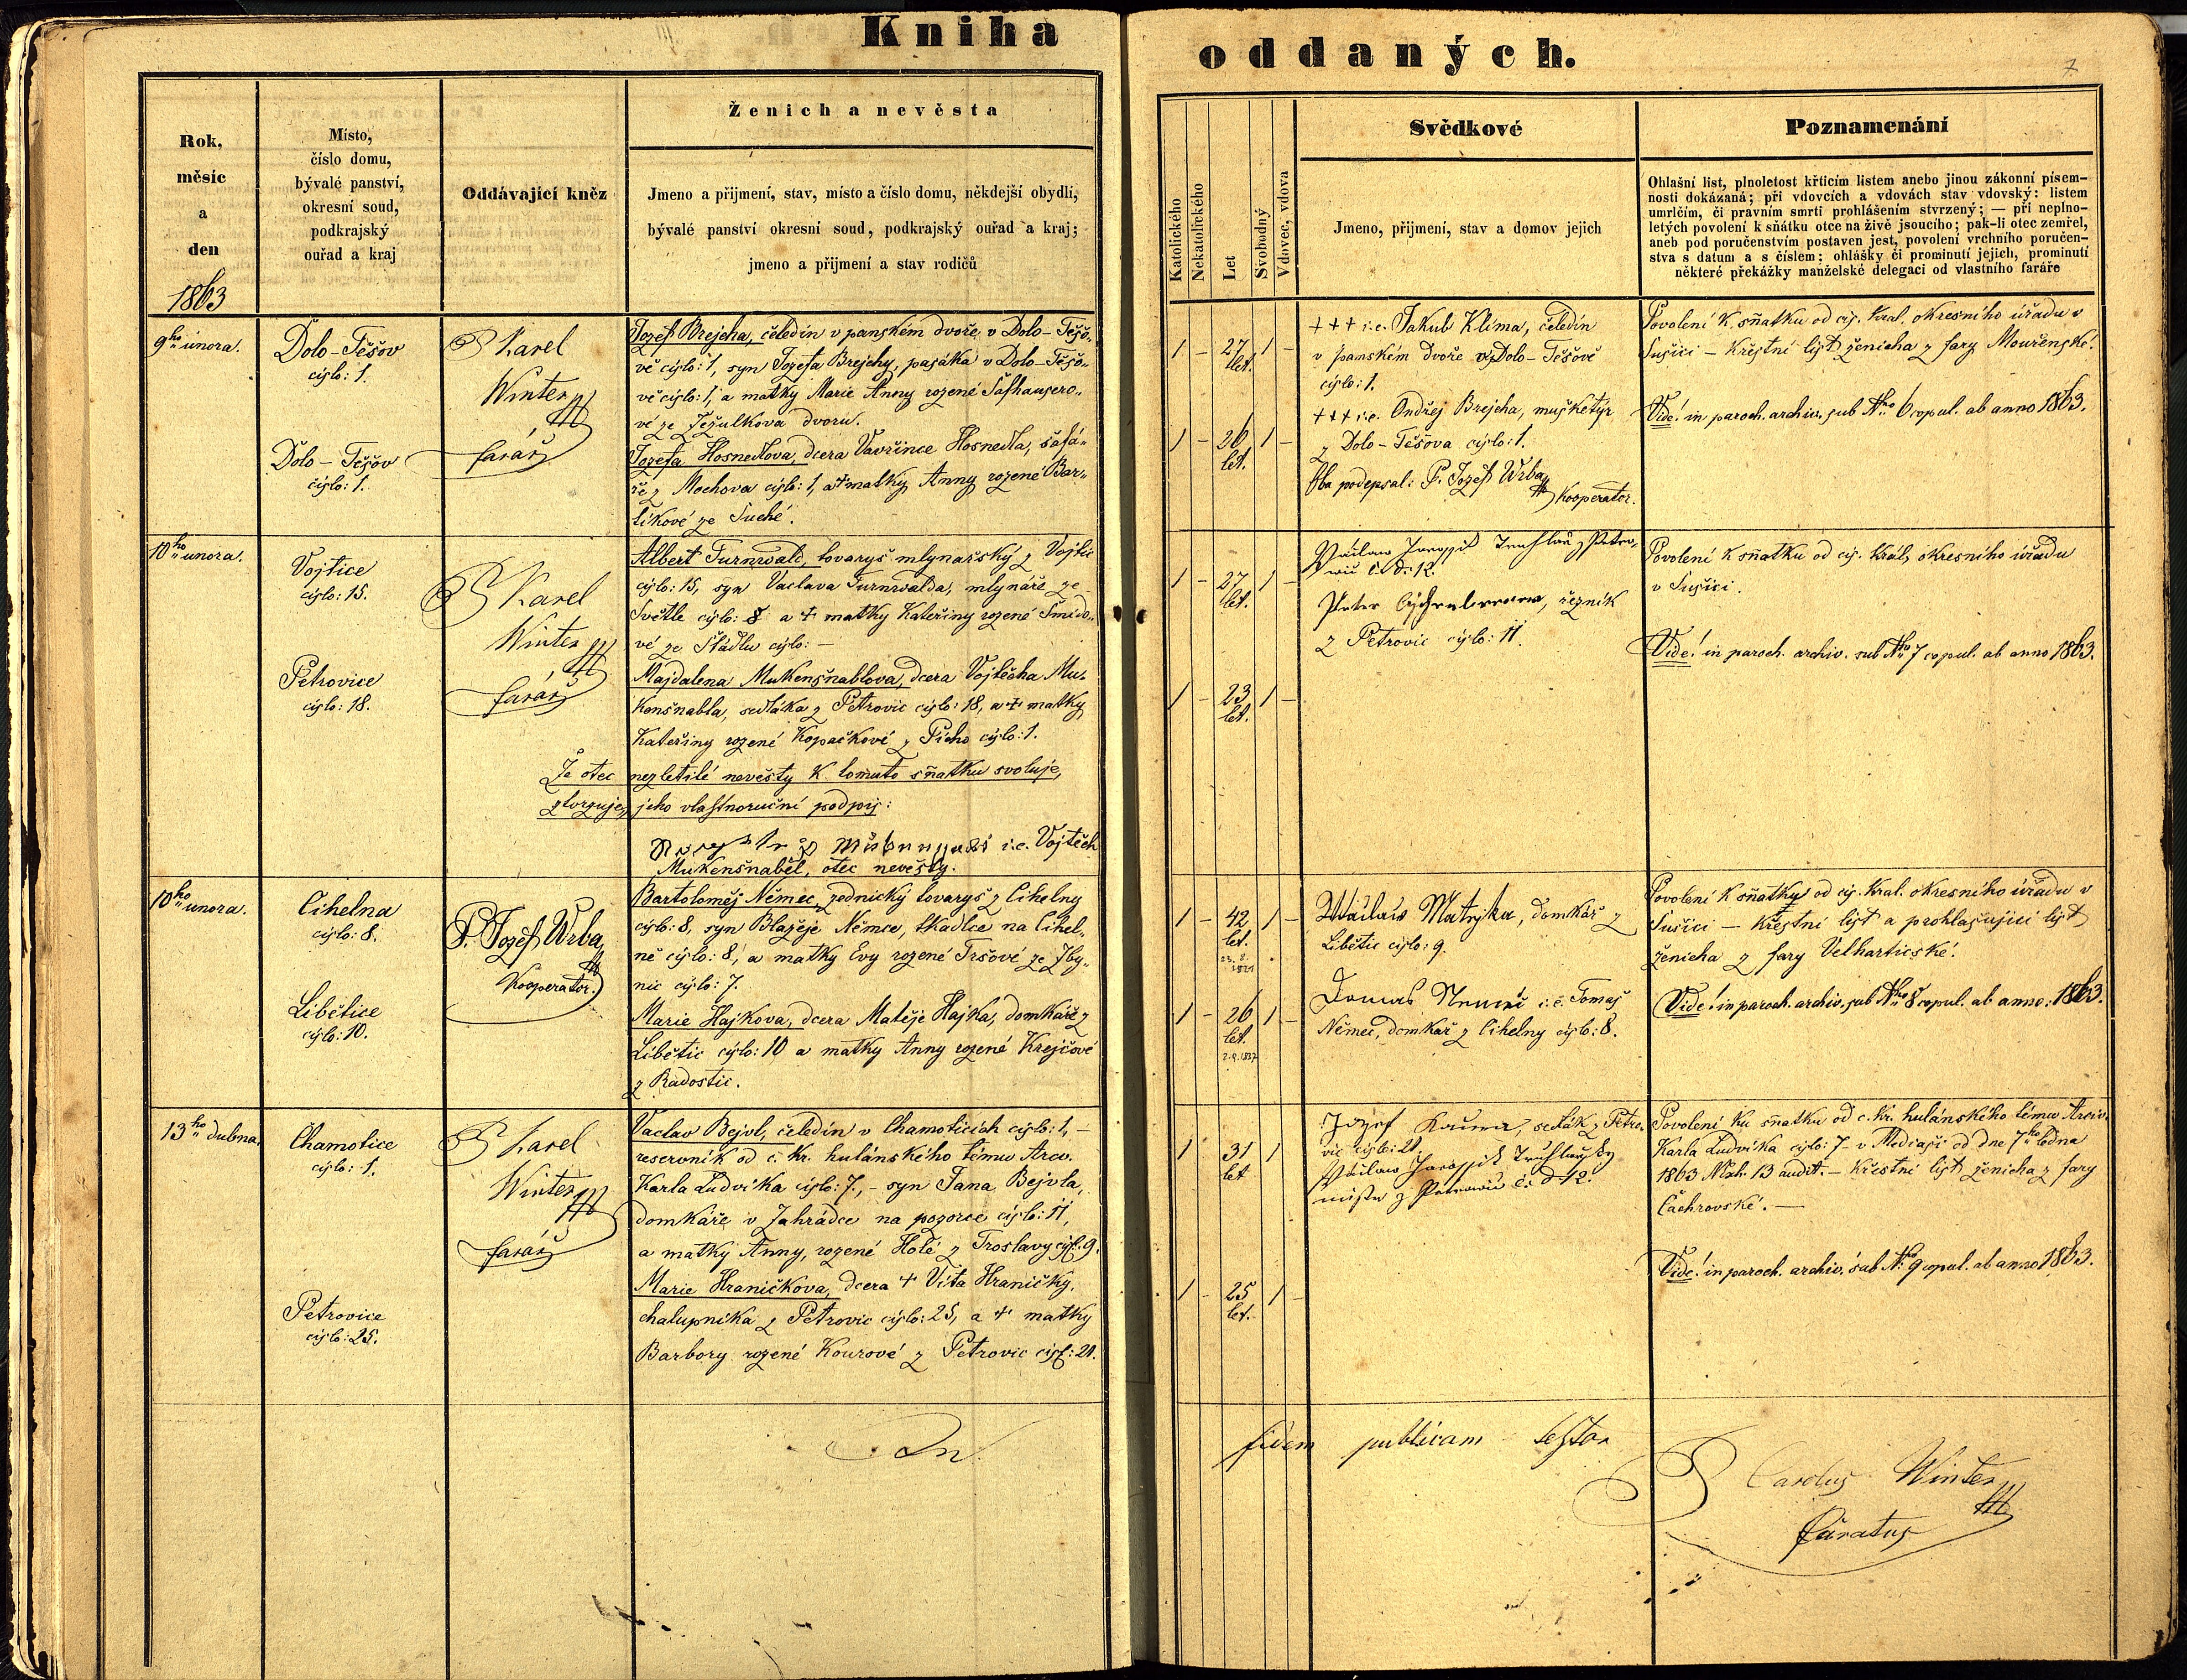 Kniha
oddaných.
7
Rok,
měsíc
a
den
1863
Místo,
číslo domu,
bývalé panství,
okresní soud,
podkrajský
ouřad a kraj
Oddávající kněz
Ženich a nevěsta
Jmeno a přijmení, stav, místo a číslo domu, někdejší obydlí,
bývalé panství okresní soud, podkrajský ouřad a kraj;
jmeno a přijmení a stav rodičů
Katolického
Nekatolického
Let
Svobodný
Vdovec, vdova
Svědkové
Jmeno, přijmení, stav a domov jejich
Poznamenání
Ohlašní list, plnoletost křticím listem anebo jinou zákonní písem-
nosti dokázaná; při vdovcích a vdovách stav vdovský: listem
umrlčím, či pravním smrti prohlášením stvrzený; — při neplno-
letých povolení k sňátku otce na živě jsoucího; pak-li otec zemřel,
aneb pod poručenstvím postaven jest, povolení vrchního poručen-
stva s datum a s číslem; ohlášky či prominutí jejich, prominutí
některé překážky manželské delegací od vlastního faráře
9ho února.
Dolo-Těšov
cyslo: 1.
Dolo-Těšov
cyslo: 1.
P. Karel
Winter
farář
Jozef Brejcha, čeledín v panském dvoře v Dolo-Těšo-
vě cyslo: 1, syn Jozefa Brejchy, pasáka v Dolo-Těšo-
vě cyslo: 1, a matky Marie Anny rozené Šafhausero-
vé ze Ježulkova dvoru.
Jozefa Hosnedlova, dcera Vavřince Hosnedla, šafá-
ře z Mochova cyslo: 1, a + matky Anny rozené Bar-
tíkové ze Suché.
1 – 27 let. 1 –
1 – 26 let. 1 –
+++ i.e. Jakub Klíma, čeledín
v panském dvoře v Dolo-Těšově
cyslo: 1.
+++ i.e. Ondřej Brejcha, mušketýr
z Dolo-Těšova cyslo: 1.
Oba podepsal: P. Jozef Wrba
Kooperator.
Povolení k sňatku od cys. kral. okresního úřadu v
Sušici – Křestní lyst ženicha z fary Mouřenské.
Vide! in paroch. archiv. sub Nro 6 copul. ab anno 1863.
10ho února.
Vojtice
cyslo: 15.
Petrovice
cyslo: 18.
P. Karel
Winter
farář
Albert Turnwald, tovaryš mlynařský z Vojtic
cyslo: 15, syn Vaclava Turnwalda, mlynáře ze
Světle cyslo: 8 a + matky Kateřiny rozené Šmido-
vé ze Štádlu cyslo: –
Majdalena Mukenšnablova, dcera Vojtěcha Mu-
kenšnabla, sedláka z Petrovic cyslo: 18, a + matky
Kateřiny rozené Kopačkové z Píchо cyslo: 1.
Že otec nezletilé nevěsty k tomuto sňatku svoluje,
ztvrzuje jeho vlastnoruční podpis:
i.e. Vojtěch
Mukenšnabel, otec nevěsty.
1 – 27 let. 1 –
1 – 23 let. 1 –
Václav Truhlář z Petro-
wic č. d. 12.
Peter řezník
z Petrovic cyslo: 11.
Povolení k sňatku od cys. král. okresního úřadu
v Sušici.
Vide! in paroch. archiv. sub Nro 7 copul. ab anno 1863.
10ho února.
Cihelna
cyslo: 8.
Liběticе
cyslo: 10.
P. Jozef Wrba
Kooperator.
Bartoloměj Němec, zednický tovaryš z Cihelny
cyslo: 8, syn Blažeje Němce, tkadlce na Cihel-
ně cyslo: 8, a matky Evy rozené Tršové ze Zby-
nic cyslo: 7.
Marie Hajkova, dcera Matěje Hajka, domkáře z
Libětic cyslo: 10 a matky Anny rozené Krejčové
z Radostic.
1 – 42 let. 1 –
23. 8.
1821
1 – 26 let. 1 –
2. 9. 1837
Wáclaw Matějka, domkář z
Libětic cyslo: 9.
Tomas i.e. Tomaš
Němec, domkař z Cihelny cyslo: 8.
Povolení k sňatku od cys. kral. okresního úřadu v
Sušici – Křestní lyst a prohlašující lyst
ženicha z fary Velhartické.
Vide! in paroch. archiv. sub Nro 8 copul. ab anno: 1863.
13ho dubna.
Chamotice
cyslo: 1.
Petrovice
cyslo: 25.
P. Karel
Winter
farář
Vaclav Bejvl, čeledín v Chamoticích cyslo: 1, –
reservník od c. kr. hulánského lému Arcv.
Karla Ludvika cyslo: 7, – syn Jana Bejvla,
domkáře v Zahrádce na pozorce cyslo: 11,
a matky Anny, rozené Holé z Troslavy cysl. 9.
Marie Hraničkova, dcera + Víta Hraničky,
chalupníka z Petrovic cyslo: 25, a + matky
Barbory rozené Kourové z Petrovic cysl: 21.
1 31 let 1
1 – 25 let. 1 –
Jozef Kaura, sedlák z Petro-
vic cyslo: 21.
Václaw Truhlařský
mistr z Petrowic č. d. 12.
Povolení ku sňatku od c. kr. hulánského lému Arciv.
Karla Ludvíka cyslo: 7 v Mediaši od dne 7ho ledna
1863 Nroh. 13 audit. – Křestní lyst ženicha z fary
Čachrovské. –
Vide! in paroch. archiv. sub Nro 9 copul. ab anno 1863.
In fidem publicam testor
P. Carolus Winter
Curatus